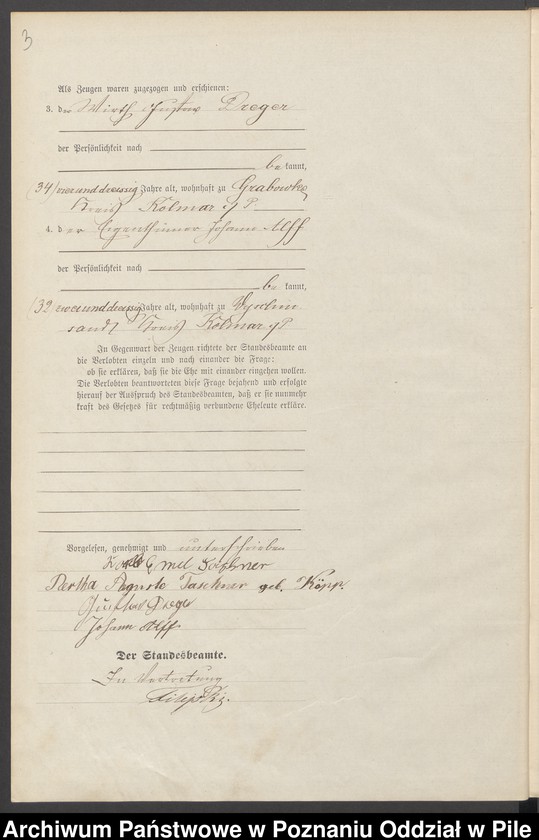 3
Als Zeugen waren zugezogen und erschienen:
3. der Wirth Gustav Dreger
der Persönlichkeit nach
be kannt,
(34) vierunddreissig Jahre alt, wohnhaft zu Grabowke
Kreis Kolmar i/P.
4. der Eigenthümer Johann Alff
der Persönlichkeit nach
be kannt,
(32 zweiunddreissig Jahre alt, wohnhaft zu
Kreis Kolmar i/P
In Gegenwart der Zeugen richtete der Standesbeamte an
die Verlobten einzeln und nach einander die Frage:
ob sie erklären, daß sie die Ehe mit einander eingehen wollen.
Die Verlobten beantworteten diese Frage bejahend und erfolgte
hierauf der Ausspruch des Standesbeamten, daß er sie nunmehr
kraft des Gesetzes für rechtmäßig verbundene Eheleute erkläre.
Vorgelesen, genehmigt und unterschrieben
Emil Taschner
Bertha Auguste Taschner geb. Köpp.
Gustav Dreger
Johann Alff
Der Standesbeamte.
In Vertretung
Archiwum Państwowe w Poznaniu Oddział w Pile